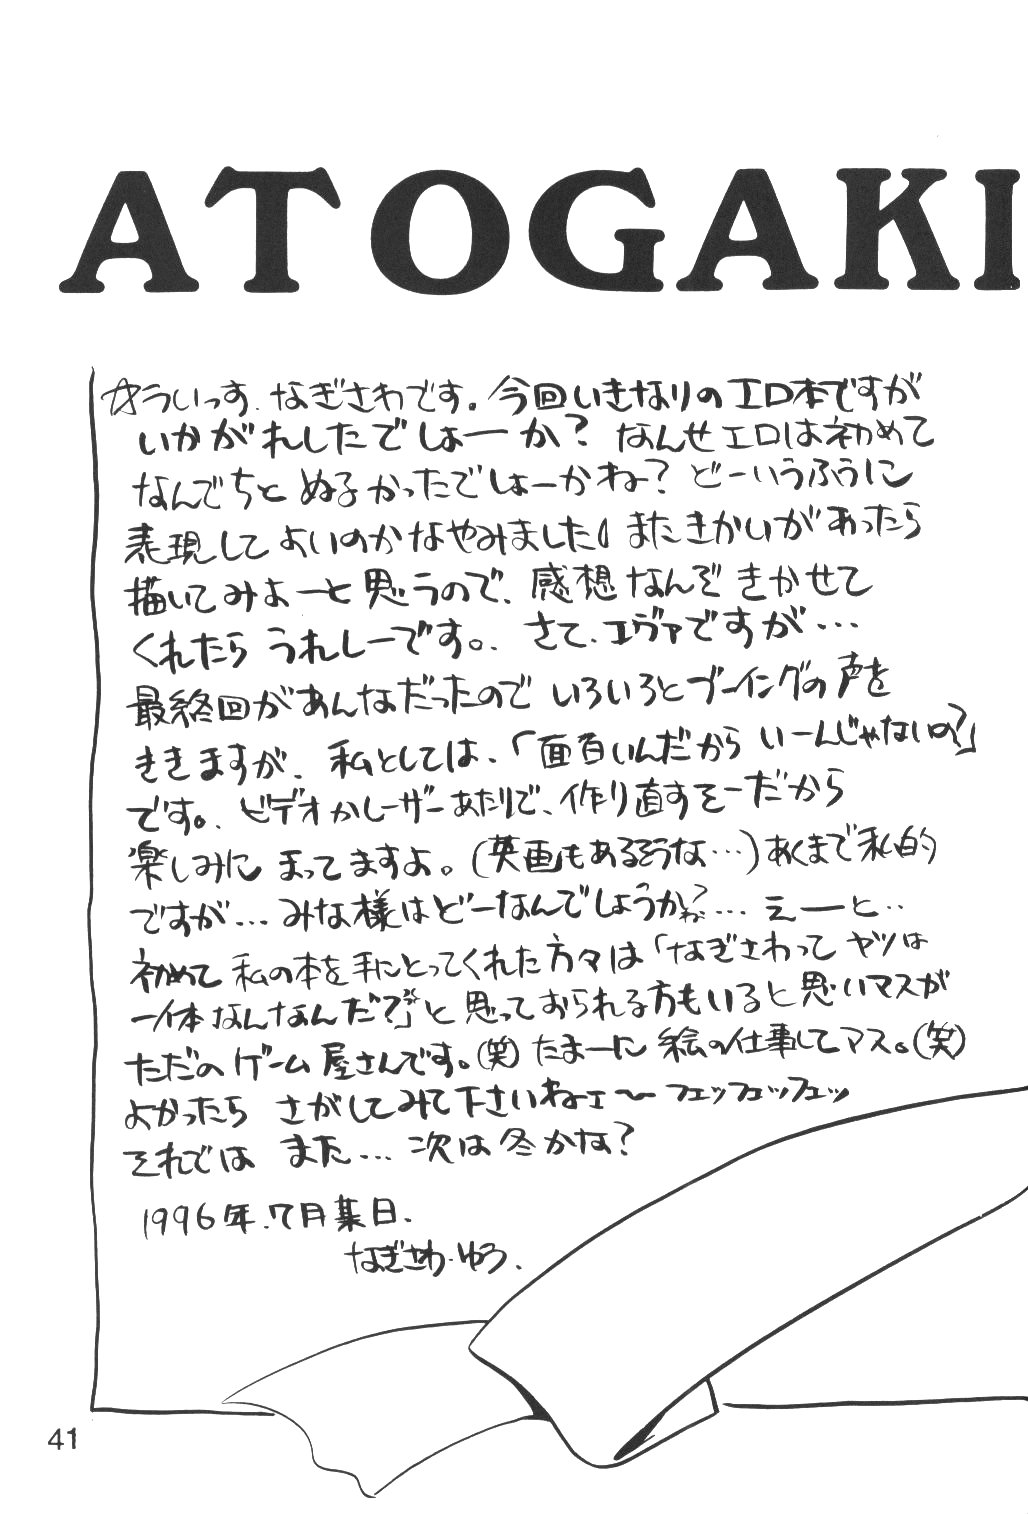 ATOGAKI
☆ういっす、なぎさわです。今回いきなりのエロ本ですが
いかがれしたでしょーか?なんせエロは初めて
なんでちと ぬるかったでしょーかね?どーいうふうに
表現して よいのかなやみました。またきかいがあったら
描いてみよーと思うので、感想なんぞ きかせて
くれたら うれしーです。、さて、エヴァですが…
最終回があんなだったので いろいろとブーイングの声を
ききますが、私としては、「面白いんだから いーんじゃないの?」
です。、ビデオかレーザーあたりで、作り直すそーだから
楽しみに まってますよ。(英画もあるそうな…)あくまで私的
ですが…みな様はどーなんでしょうか?…えーーと‥
初めて 私の本を手にとってくれた方々は「なぎさわって ヤツは
一体なんなんだ?」と思っておられる方もいると思いマスが
ただの ゲーム屋さんです。(笑)たまーに 絵の仕事してマス。(笑)
よかったら さがしてみて下さいねェ〜 フェッフェッフェッ
それでは また…次は冬かな?
1996年.7月某日.
なぎさわ・ゆう.
41